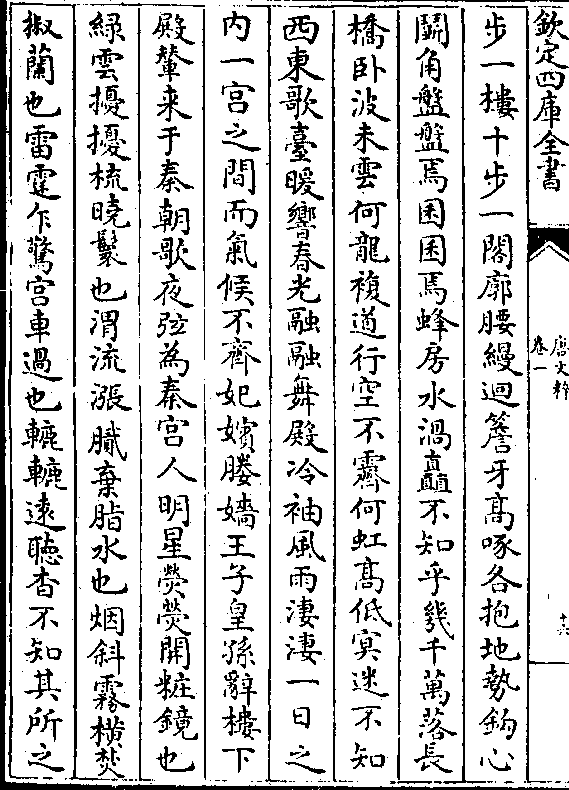 欽定四庫全書
唐文粹
卷一
十六
步一樓十步一閣廓腰縵迴簷牙高啄各抱地勢鈎心
鬭角盤盤焉囷囷焉蜂房水渦矗不知乎幾千萬落長
橋卧波未雲何龍複道行空不霽何虹高低冥迷不知
西東歌臺暖響春光融融舞殿冷袖風雨淒淒一日之
内一宫之間而氣候不齊妃嬪媵嬙王子皇孫辭樓下
殿輦来于秦朝歌夜弦為秦宫人明星熒熒開粧鏡也
緑雲擾擾梳曉鬟也渭流漲膩棄脂水也烟斜霧横焚
椒蘭也雷霆乍驚宫車過也轆轆遠聽杳不知其所之